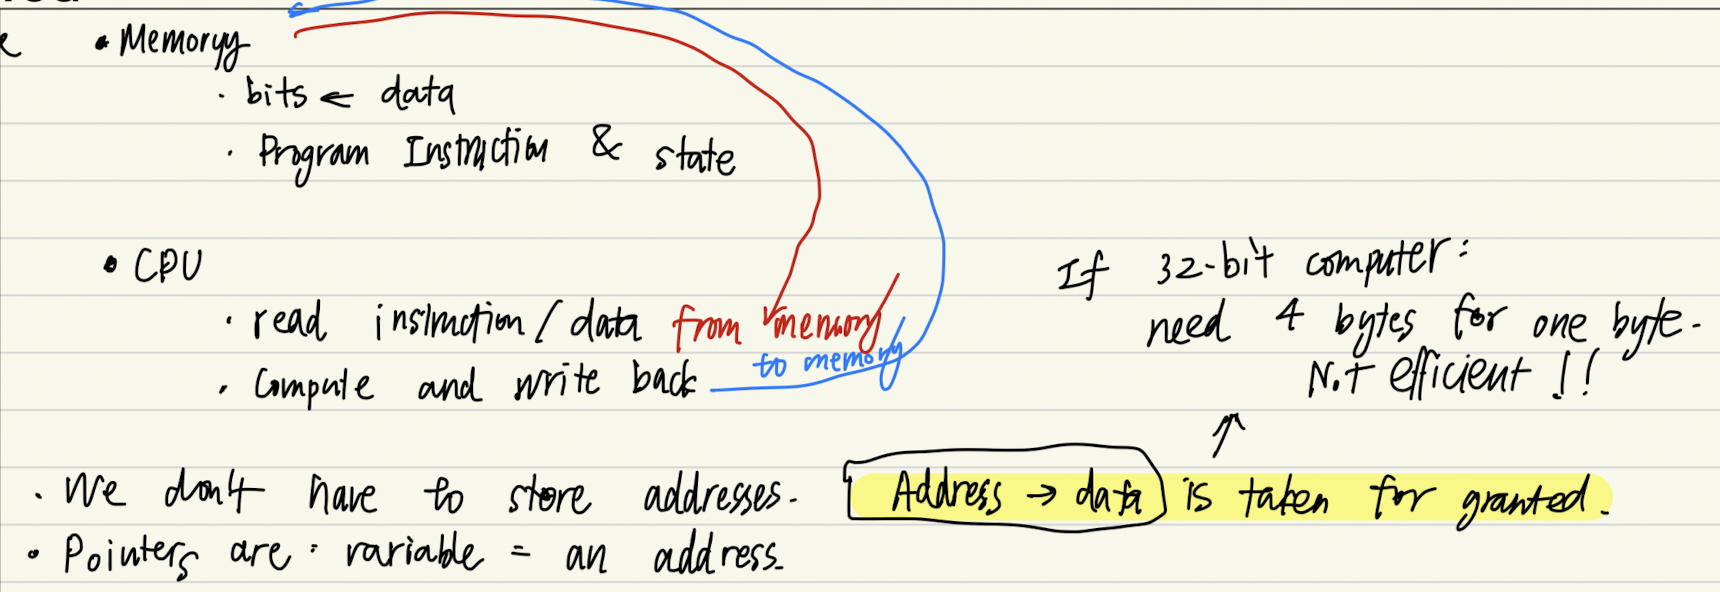 • Memoryy
· bits ← data
· Program Instruction & state
• CPU
· read instruction/data from memory
· Compute and write back to memory
If 32-bit computer:
need 4 bytes for one byte.
Not efficient !!
↑
· We don't have to store addresses. Address → data is taken for granted.
• Pointers are : variable = an address.